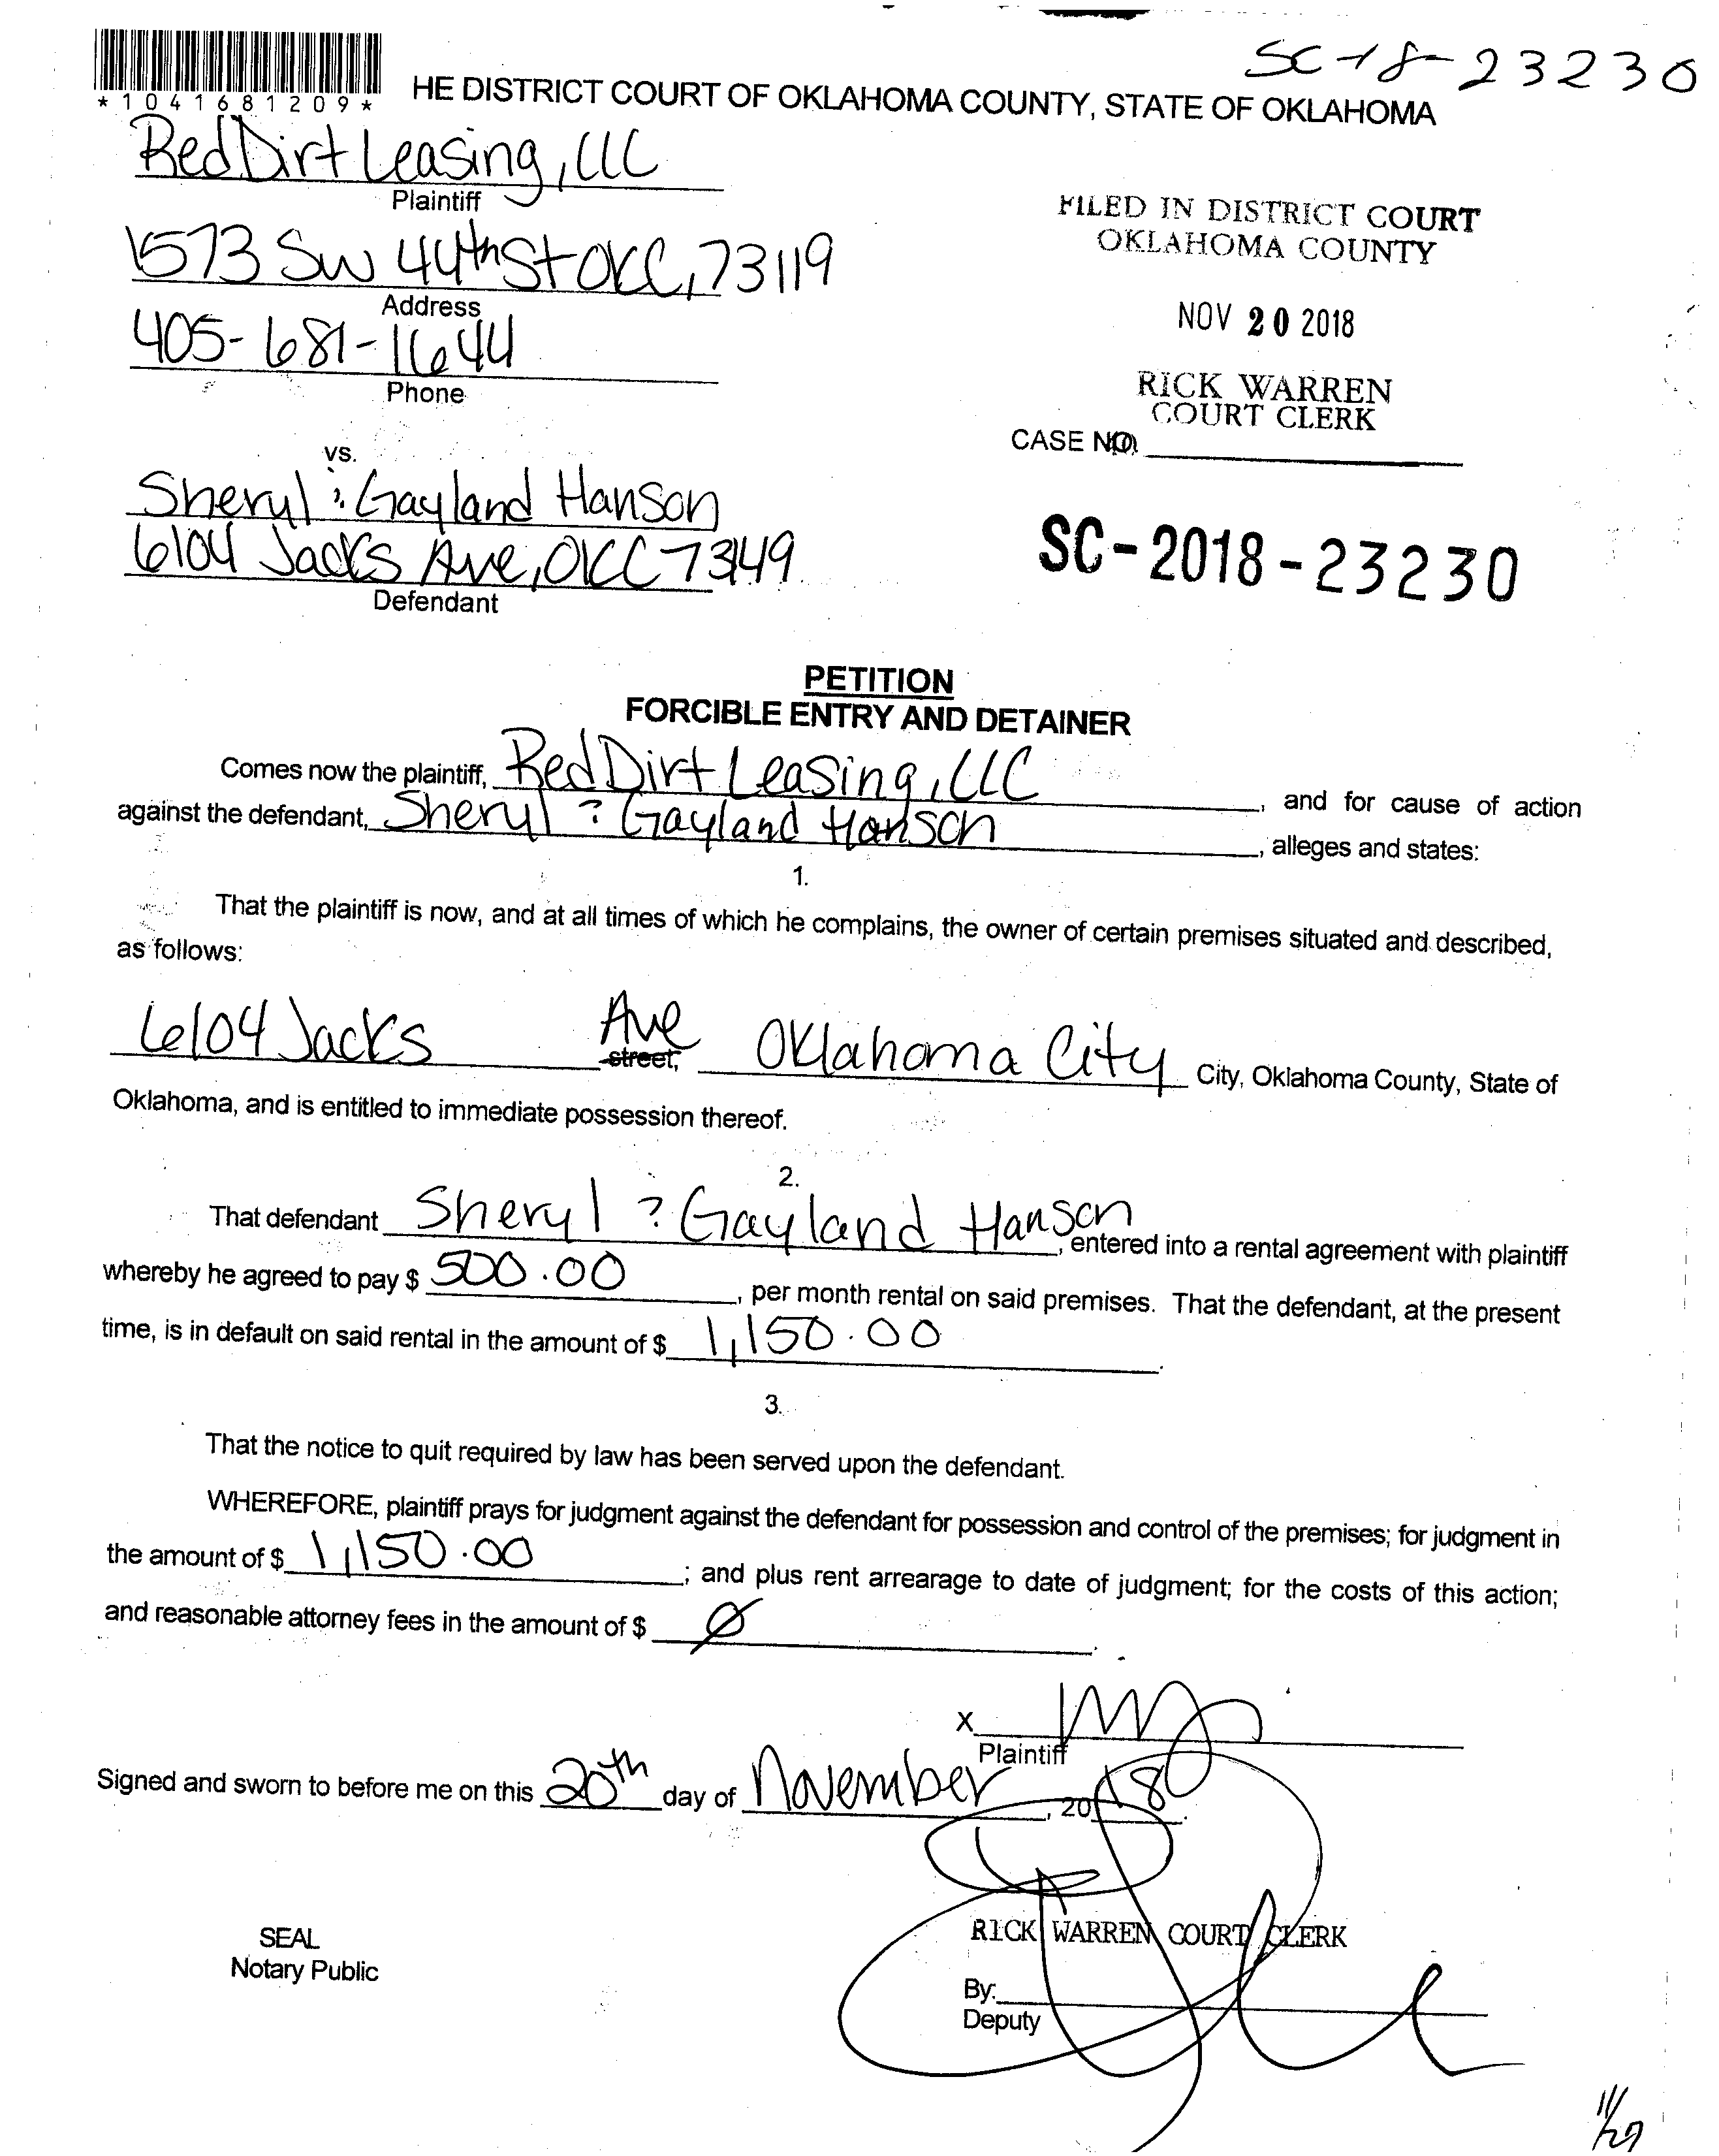 SC-18-23230
*1041681209*
HE DISTRICT COURT OF OKLAHOMA COUNTY, STATE OF OKLAHOMA
Red Dirt Leasing, LLC
Plaintiff
1573 SW 44th St OKC, 73119
Address
405-681-1644
Phone
FILED IN DISTRICT COURT
OKLAHOMA COUNTY
NOV 20 2018
RICK WARREN
COURT CLERK
CASE NO.
vs.
Sheryl & Gayland Hanson
6104 Jacks Ave, OKC 73149
Defendant
SC-2018-23230
PETITION
FORCIBLE ENTRY AND DETAINER
Comes now the plaintiff, Red Dirt Leasing, LLC, and for cause of action
against the defendant, Sheryl & Gayland Hanson, alleges and states:
1.
That the plaintiff is now, and at all times of which he complains, the owner of certain premises situated and described,
as follows:
6104 Jacks Ave street, Oklahoma City City, Oklahoma County, State of
Oklahoma, and is entitled to immediate possession thereof.
2.
That defendant Sheryl & Gayland Hanson, entered into a rental agreement with plaintiff
whereby he agreed to pay $ 500.00, per month rental on said premises. That the defendant, at the present
time, is in default on said rental in the amount of $ 1,150.00.
3.
That the notice to quit required by law has been served upon the defendant.
WHEREFORE, plaintiff prays for judgment against the defendant for possession and control of the premises; for judgment in
the amount of $ 1,150.00; and plus rent arrearage to date of judgment; for the costs of this action;
and reasonable attorney fees in the amount of $ Ø.
X
Plaintiff
Signed and sworn to before me on this 20th day of November, 2018.
SEAL
Notary Public
RICK WARREN COURT CLERK
By:
Deputy
11/27